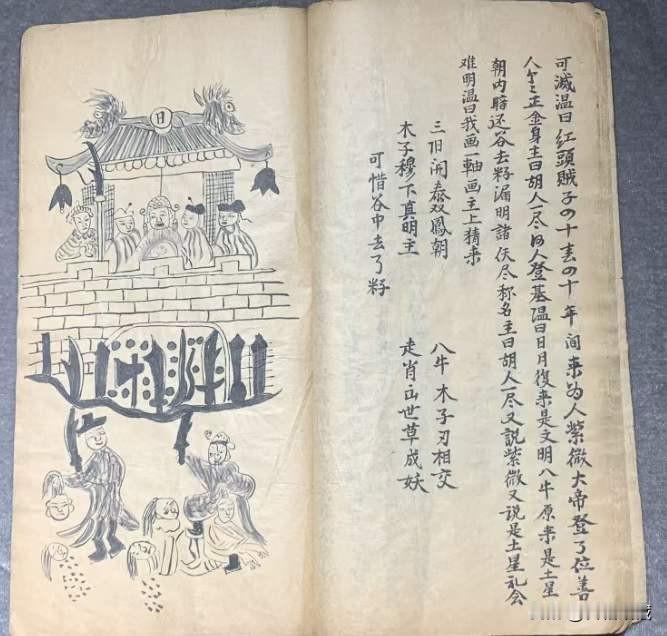 可滅温曰紅頭賊子四十春四十年间来为人紫微大帝登了位善
人个〻正金身主曰胡人一尽何人登基温曰日月復来是文明八牛原来是土星
朝内賠还谷去籽漏明諸伕尽称名主曰胡人一尽又説紫微又説是土星礼会
难明温曰我画一軸画主上猜来
三阳開泰双鳳朝
八牛木子刃相交
木子穆下真明主
走肖二世草成妖
可惜谷中去了籽
日